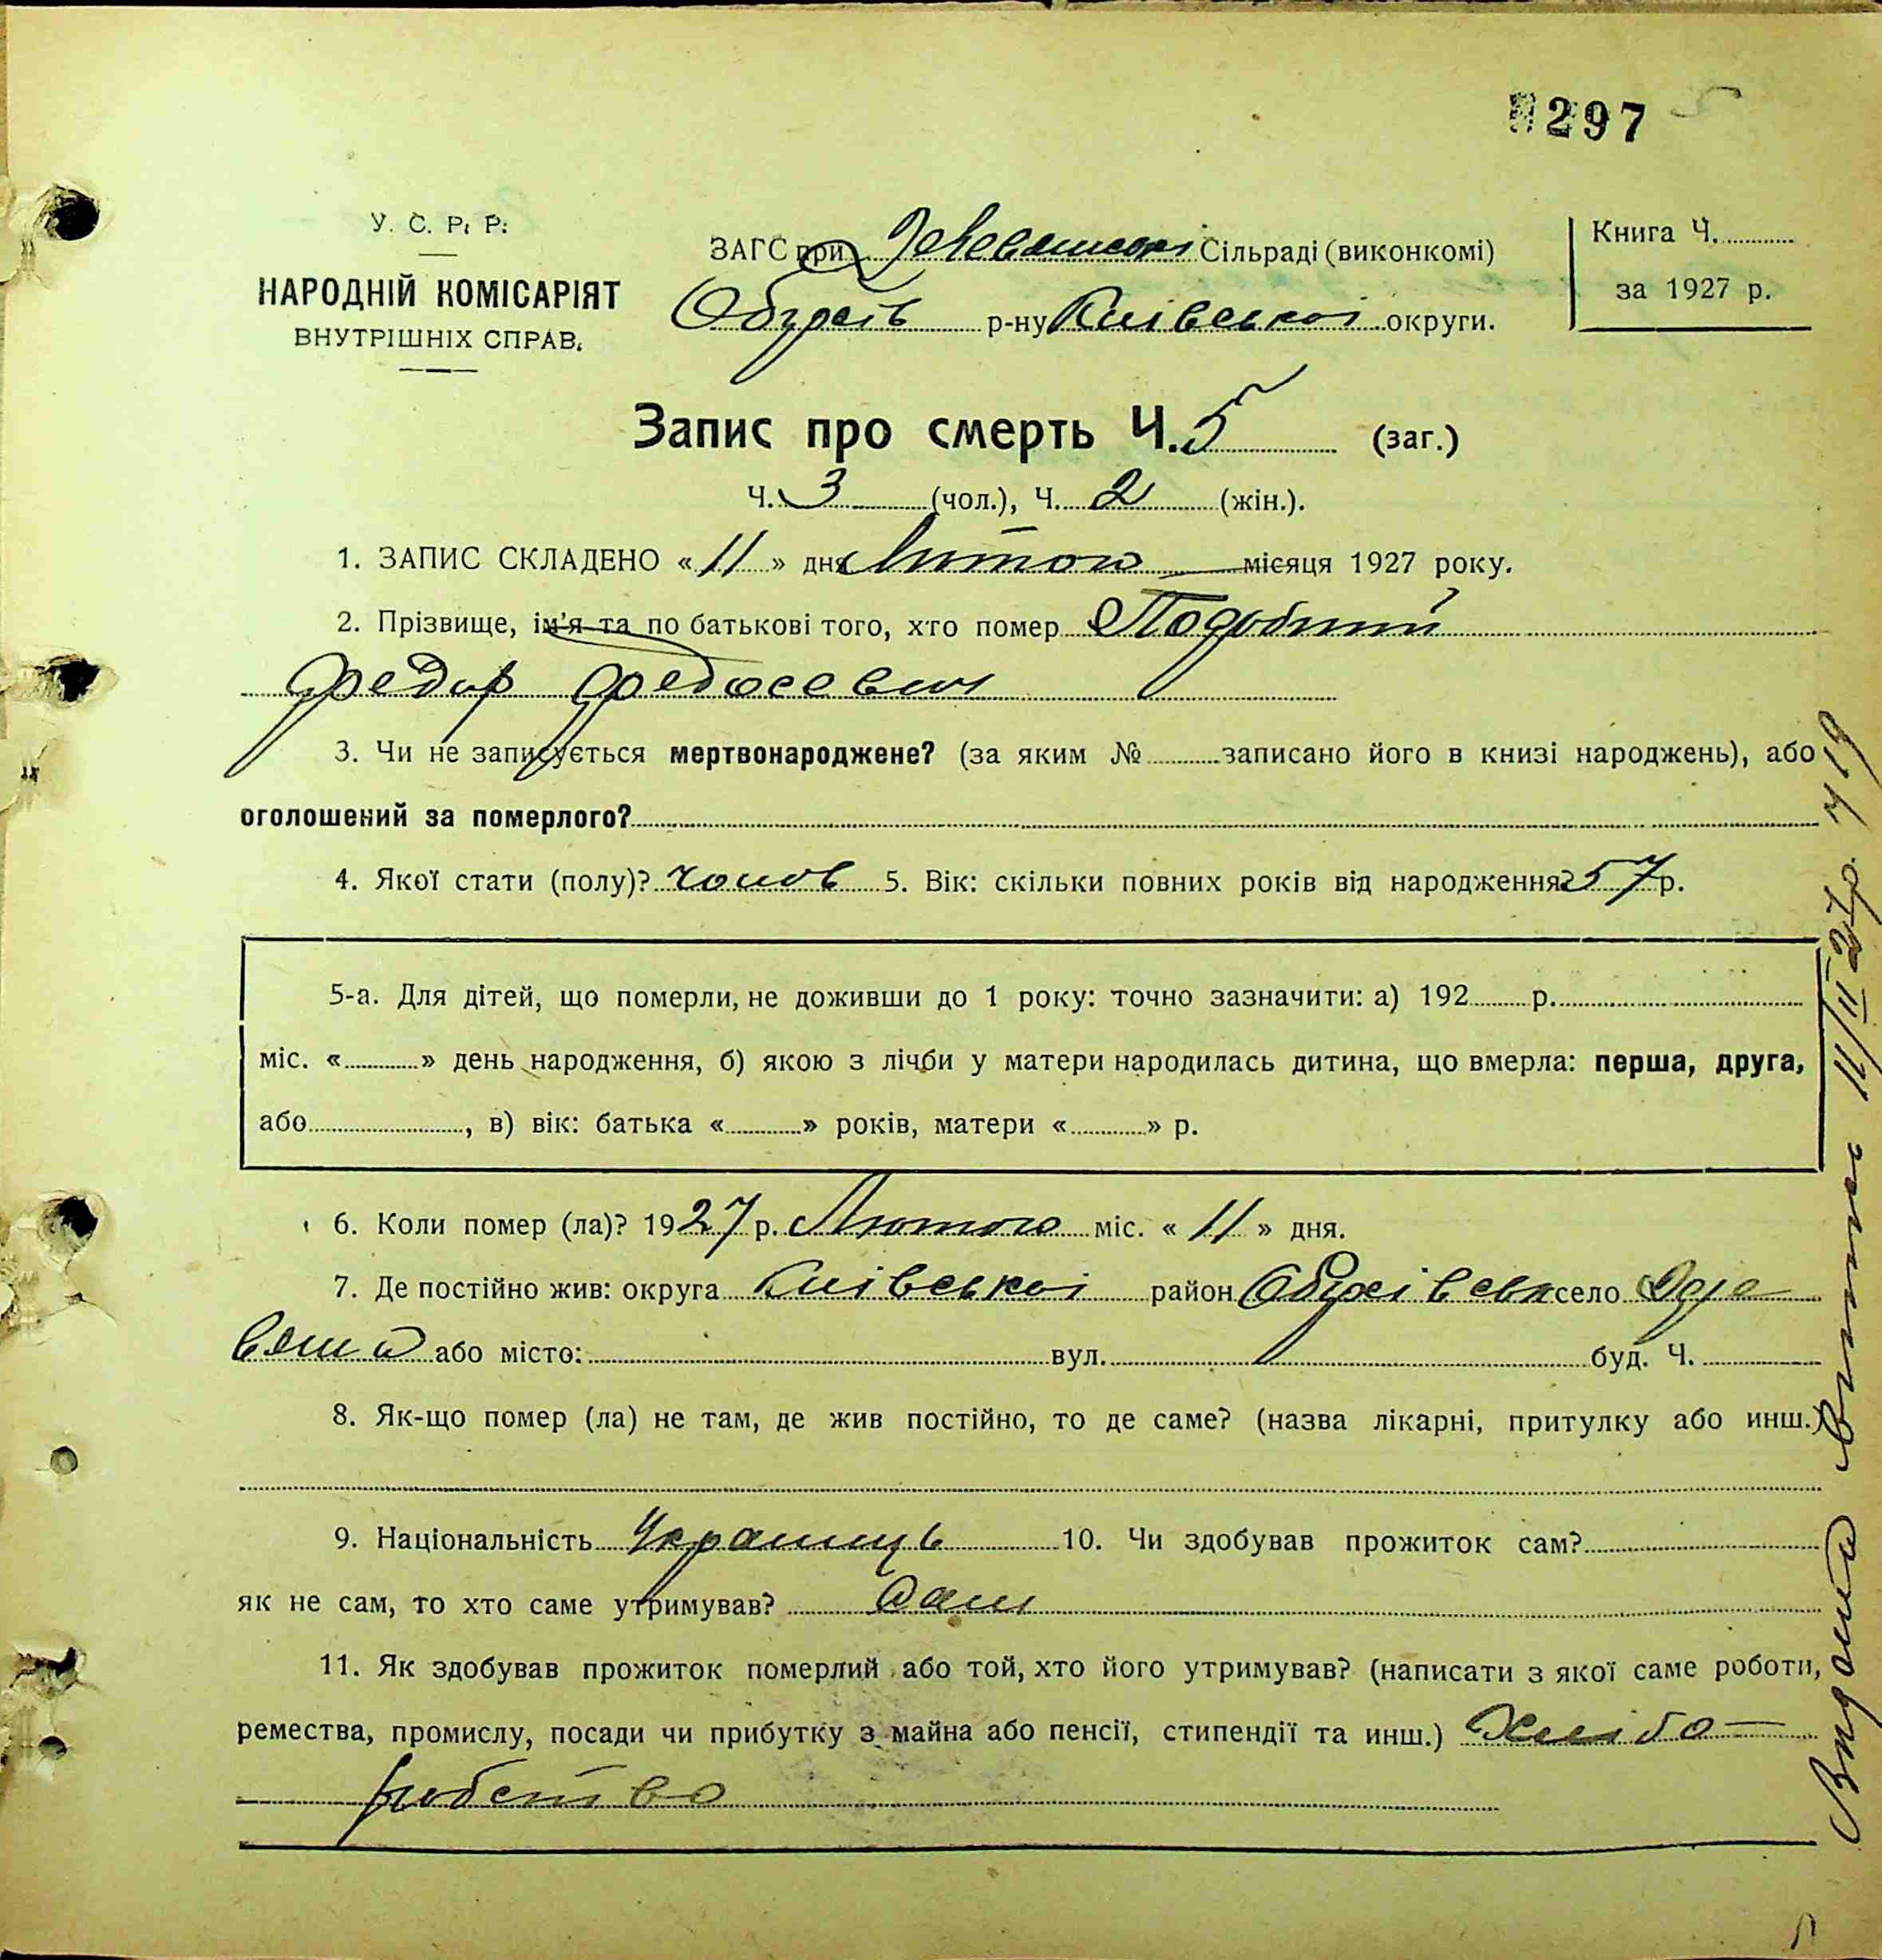 297
У. С. Р. Р.
НАРОДНІЙ КОМІСАРІЯТ
ВНУТРІШНІХ СПРАВ.
ЗАГС при Сільраді (виконкомі)
р-ну Київської округи.
Книга Ч.
за 1927 р.
Запис про смерть Ч. 5 (заг.)
Ч. 3 (чол.), Ч. 2 (жін.).
1. ЗАПИС СКЛАДЕНО « 11 » дня Лютого місяця 1927 року.
2. Прізвище, ім'я та по батькові того, хто помер Подобний
Федір Федосевич
3. Чи не записується мертвонароджене? (за яким № записано його в книзі народжень), або
оголошений за померлого?
4. Якої стати (полу)? чолов 5. Вік: скільки повних років від народження? 57 р.
5-а. Для дітей, що померли, не доживши до 1 року: точно зазначити: а) 192 р.
міс. « » день народження, б) якою з лічби у матери народилась дитина, що вмерла: перша, друга,
або , в) вік: батька « » років, матери « » р.
6. Коли помер (ла)? 1927 р. Лютого міс. « 11 » дня.
7. Де постійно жив: округа Київської район Обухівськ село Дере
вяна або місто: вул. буд. Ч.
8. Як-що помер (ла) не там, де жив постійно, то де саме? (назва лікарні, притулку або инш.)
9. Національність Украинць 10. Чи здобував прожиток сам?
як не сам, то хто саме утримував? Сам
11. Як здобував прожиток померлий або той, хто його утримував? (написати з якої саме роботи,
ремества, промислу, посади чи прибутку з майна або пенсії, стипендії та инш.) Хлібо-
робство
Видано випис 11/II 27р. № 19